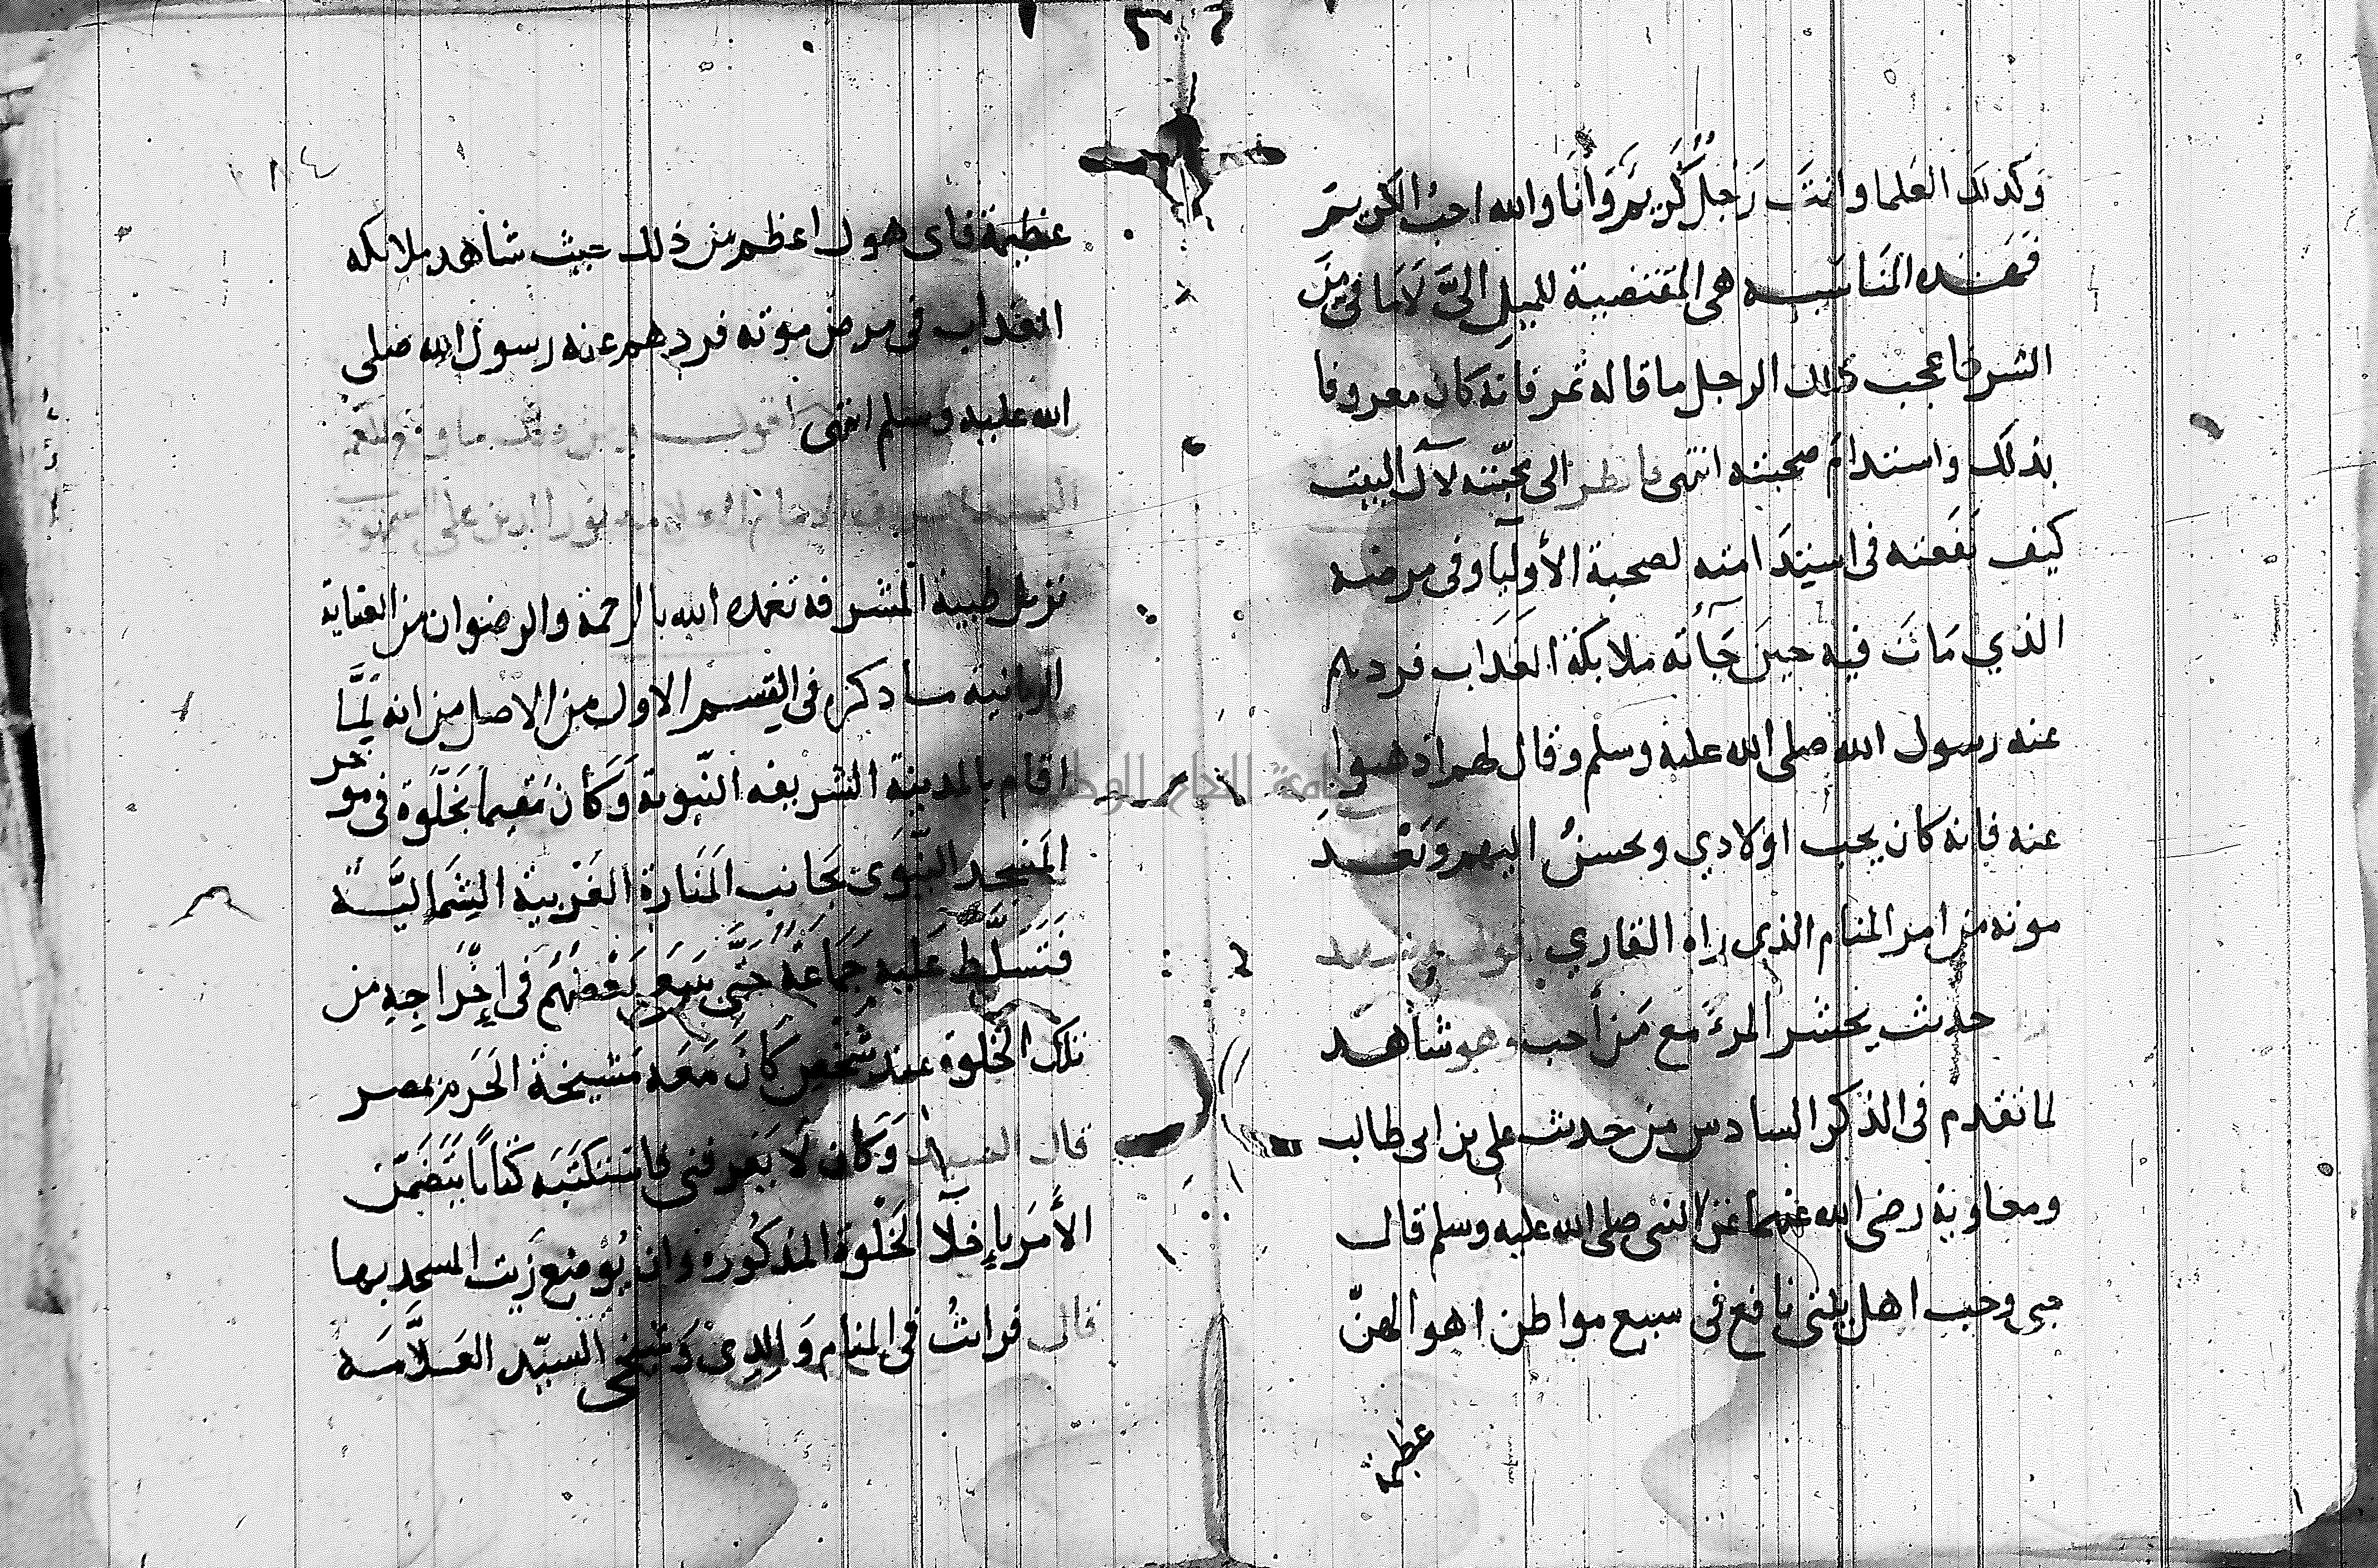 وكذلك العلما وانت رَجُلٌ كَرِيم وَأنَا والله احب الكريم
فَهَذه المنَاسَبه هى المقتضية للميل الىَّ لاَ مَا فىَّ مِنَ
الشرف اعجب ذلك الرجل ما قاله تمر فانه كان معروفا
بذلك واستدام صحبته انتهى فانظر الى محبّته لآل البيت
كيف نفعته فى استِدَامته لصحبة الأوليآ وفى مرضه
الذي مَاتَ فيه حِينَ جَآءته ملائكة العَذَاب فردهم
عنه رسول الله صلى الله عليه وسلم وقال لهم اذهبوا
عنه فانه كان يحب اولادي ويحسنُ اليهم وَبَعْـد
موته من امر المنام الذى راه القاري اقول ويويد
حديث يحشر المرءُ مع مَن أحب وهو شاهد
لما تقدم فى الذكر السادس من حديث على بن ابى طالب
ومعاوية رضى الله عنهما عن النبى صلى الله عليه وسلم قال
حبى وحب اهل بيتى نافع فى سبع مواطن اهوالهنّ
عظيمة
١٨٤
عظيمة فاى هول اعظم من ذلك حيث شاهد ملائكه
العذاب فى مرض موته فردهم عنه رسول الله صلى
الله عليه وسلم انتهى اقول ومن ذلك ما وقع للعم
السيد الشريف الامام العلامه نور الدين على السمهودى
نزيل طيبة المشرفه تغمده الله بالرحمة والرضوان من العناية
الربانيه ما ذكره فى القسم الاول من الاصل من انه لَمَّا
اقام بالمدينة الشريفه النّبوية وَكَانَ مُقيماً بخَلْوَة فى موخر
المَسْجد النَّبَوى بجَانب المَنَارة الغَرْبية الشَمَاليَّـة
فَتَسَلَّطَ عَليه جَمَاعَةٌ حَتَّى سَعَى بَعْضهُم فى اِخْرَاجِهِ من
تلك الخَلْوَة عند شَخْصٍ كَانَ مَعَه مَشيخة الحَرَم بمصر
قال السيد وَكَان لاَ يَعْرفنى فاستكتَبَه كتَاباً يَتضَمَّن
الأَمْرَ بإخلآ الخَلْوة المذكُوره وان يُوضع زَيت المسجد بها
قال فرايتُ فى المنام وَالِدِى وَشَيْخى السيّد العَلاَّمَـه